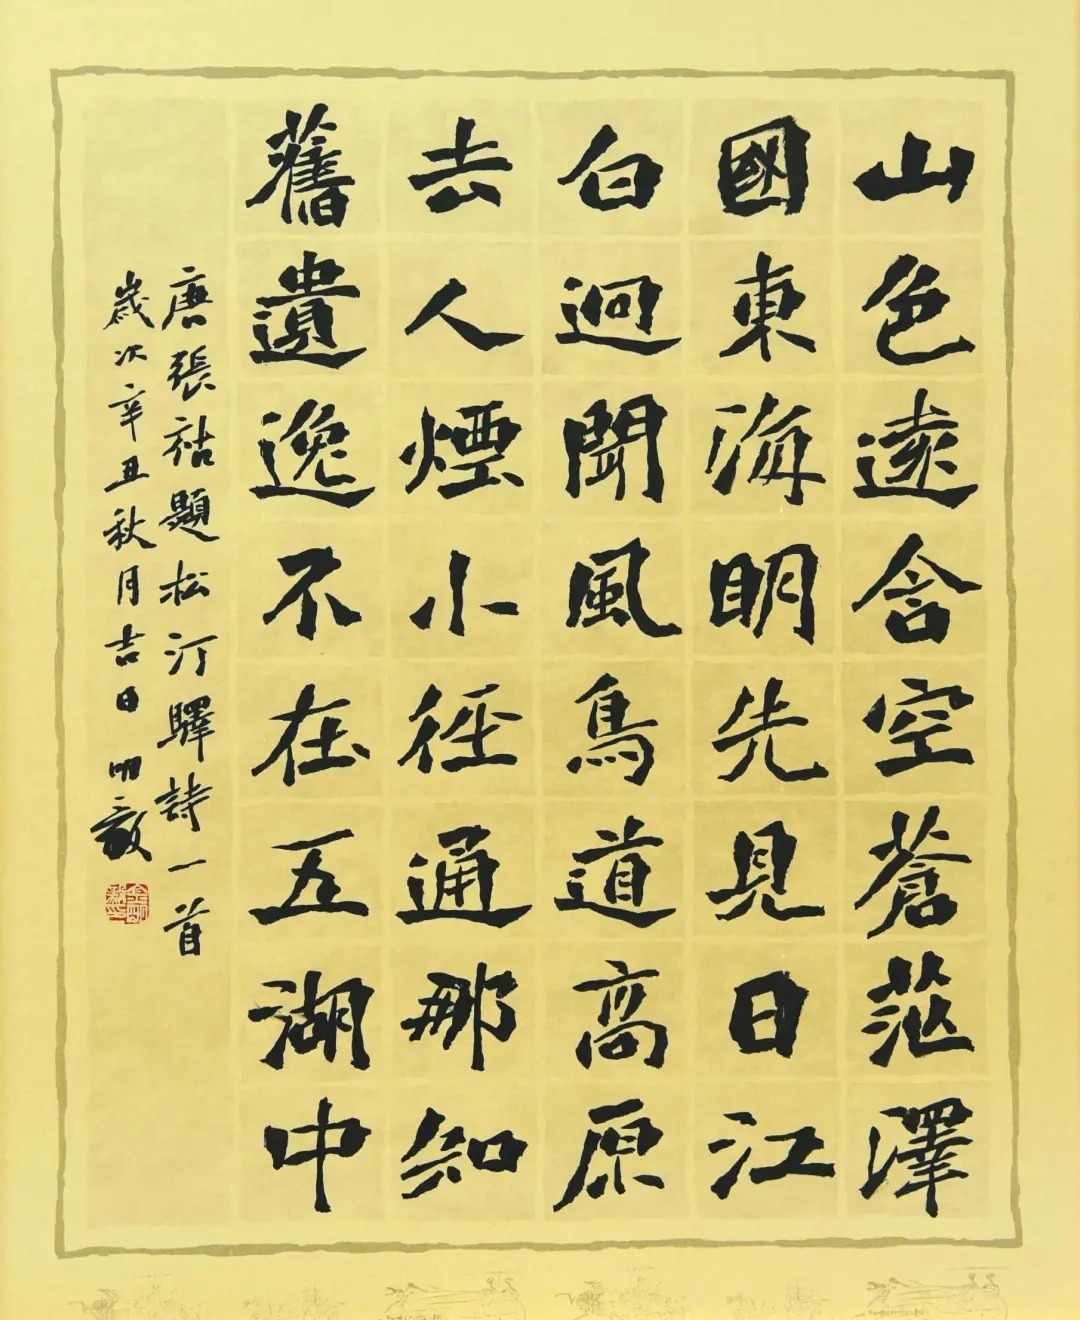 山色遠含空蒼茫澤
國東海明先見日江
白迥聞風鳥道高原
去人煙小徑通那知
舊遺逸不在五湖中
唐張祜題松汀驛詩一首
歲次辛丑秋月吉日明毅